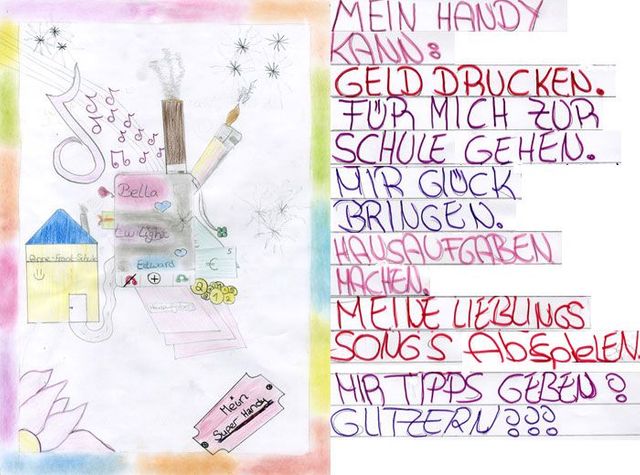 Bella
twilight
Edward
Anne-Frank-Schule
5
€
2
1
2
Mein
Super Handy
MEIN HANDY
KANN:
GELD DRUCKEN.
FÜR MICH ZUR
SCHULE GEHEN.
MIR GLÜCK
BRINGEN.
HAUSAUFGABEN
MACHEN.
MEINE LIEBLINGS
SONGS AbSpielEN.
MIR TIPPS GEBEN!
GLITZERN!!!